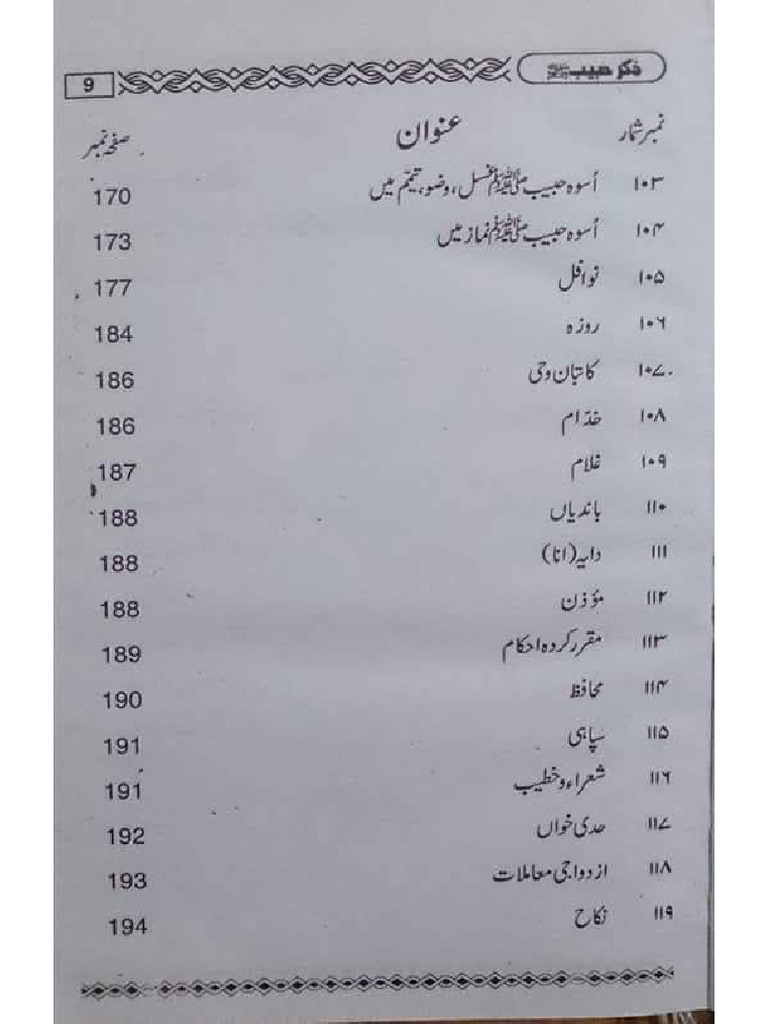 ذکر حبیب ﷺ 9
نمبر شمار عنوان صفحہ نمبر
۱۰۳ اُسوہ حبیب ﷺ غسل، وضو، تیمّم میں 170
۱۰۴ اُسوہ حبیب ﷺ نماز میں 173
۱۰۵ نوافل 177
۱۰۶ روزہ 184
۱۰۷ کاتبان وحی 186
۱۰۸ خدّام 186
۱۰۹ غلام 187
۱۱۰ باندیاں 188
۱۱۱ دایہ (انا) 188
۱۱۲ مؤذن 188
۱۱۳ مقرر کردہ احکام 189
۱۱۴ محافظ 190
۱۱۵ سپاہی 191
۱۱۶ شعراء و خطیب 191
۱۱۷ حدی خواں 192
۱۱۸ ازدواجی معاملات 193
۱۱۹ نکاح 194